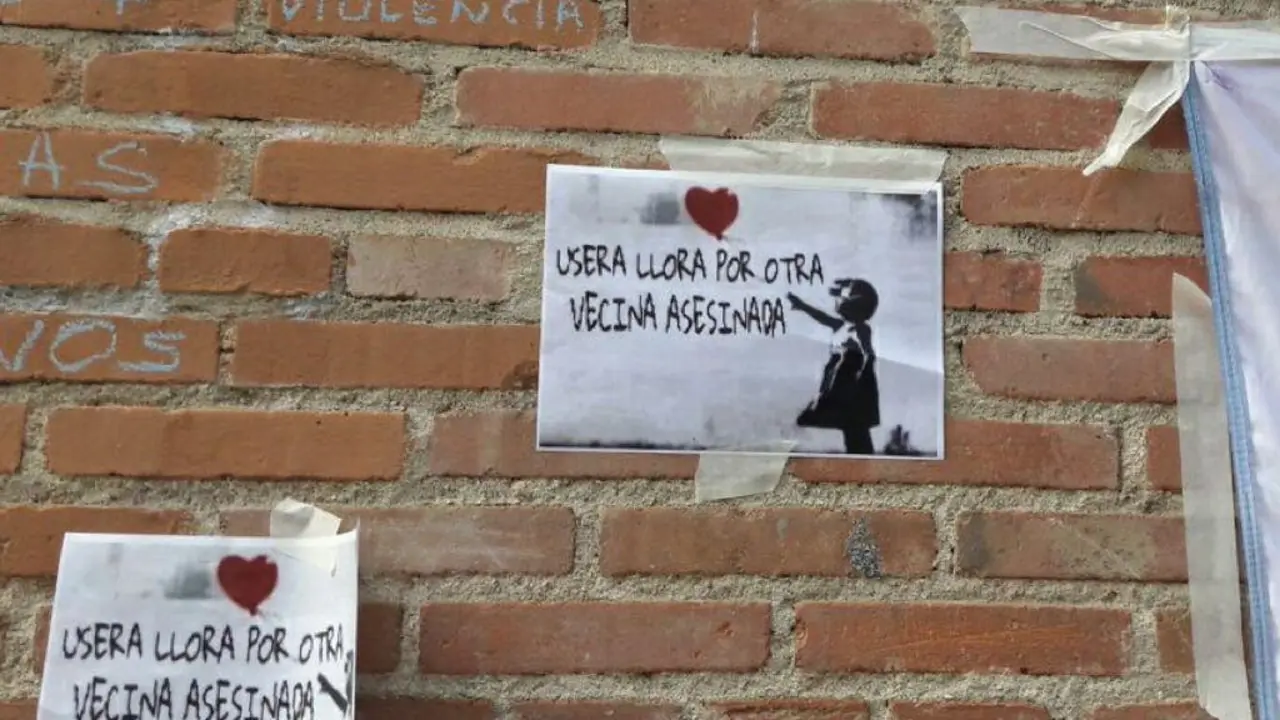 VIOLENCIA
AS
VOS
USERA LLORA POR OTRA
VECINA ASESINADA
USERA LLORA POR OTRA
VECINA ASESINADA